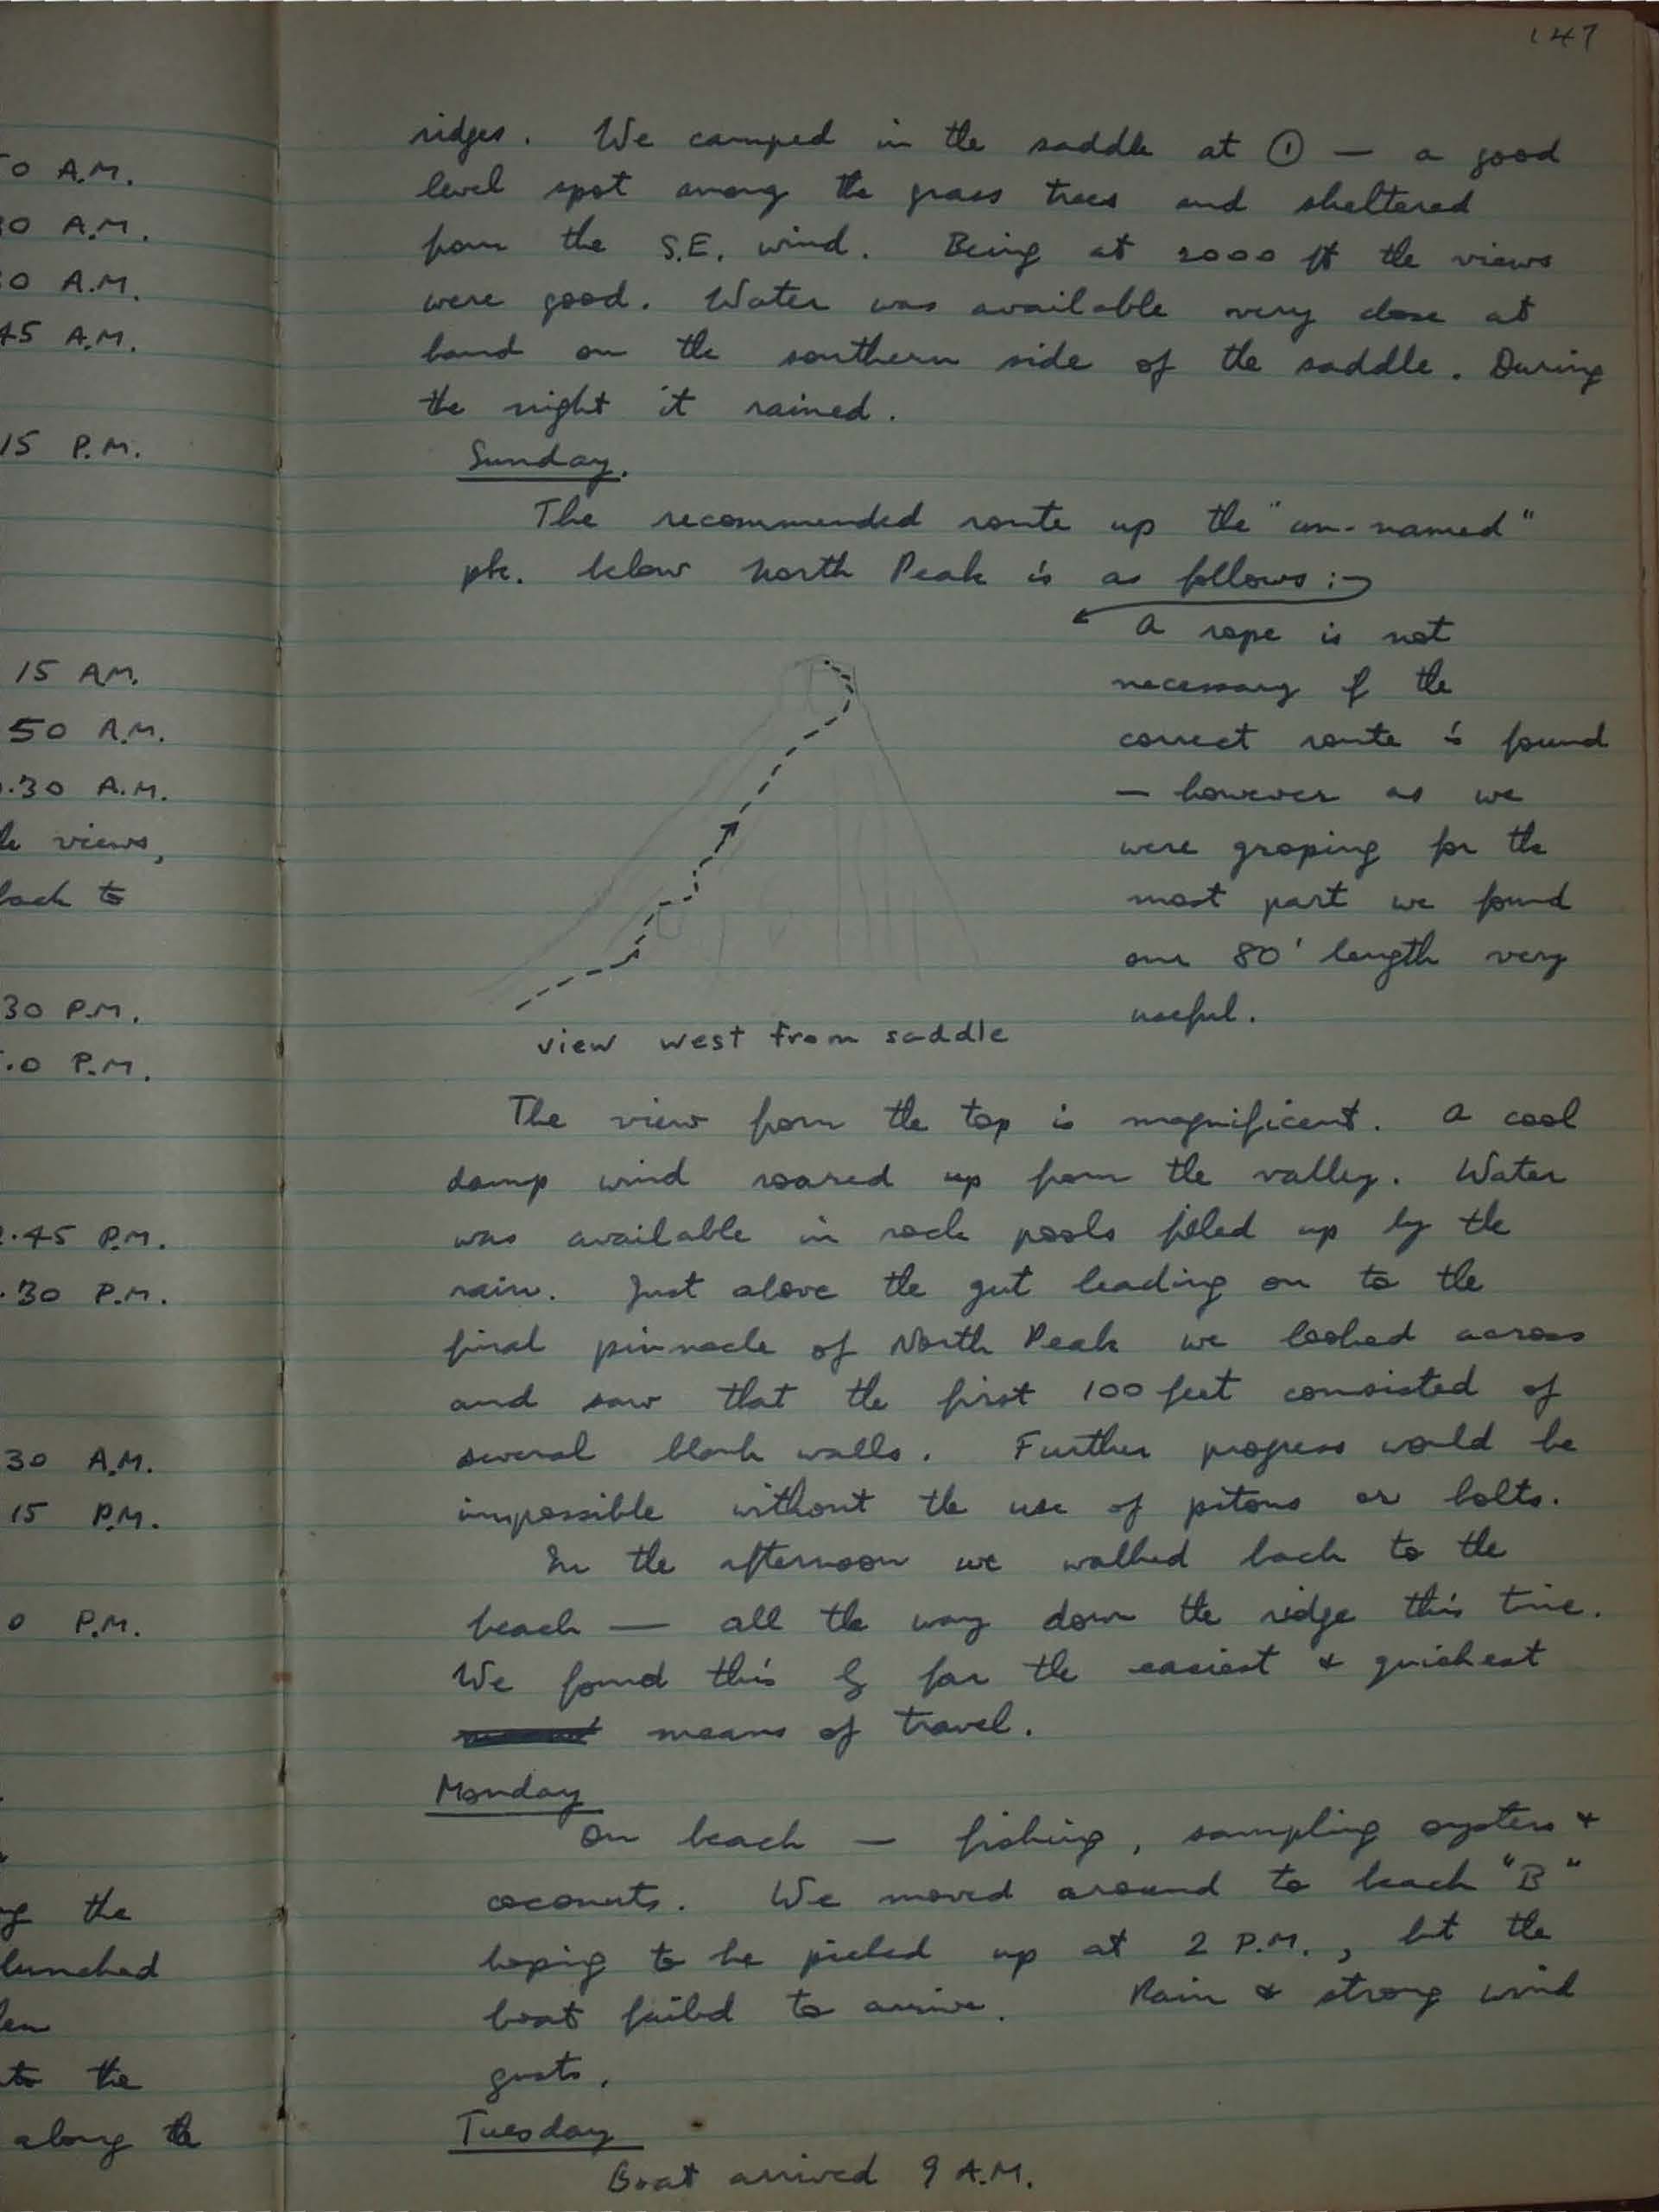 147
ridges. We camped in the saddle at ① — a good
level spot among the grass trees and sheltered
from the S.E. wind. Being at 2000 ft the views
were good. Water was available very close at
hand on the southern side of the saddle. During
the night it rained.
Sunday.
The recommended route up the "un-named"
pk. below North Peak is as follows :-
A rope is not
necessary if the
correct route is found
— however as we
were groping for the
most part we found
our 80' length very
useful.
view west from saddle
The view from the top is magnificent. A cool
damp wind roared up from the valley. Water
was available in rock pools filled up by the
rain. Just above the gut leading on to the
final pinnacle of North Peak we looked across
and saw that the first 100 feet consisted of
several blank walls. Further progress would be
impossible without the use of pitons or bolts.
In the afternoon we walked back to the
beach — all the way down the ridge this time.
We found this by far the easiest & quickest
means of travel.
Monday
On beach — fishing, sampling oysters &
coconuts. We moved around to beach "B"
hoping to be picked up at 2 P.M., but the
boat failed to arrive. Rain & strong wind
gusts.
Tuesday
Boat arrived 9 A.M.
0 A.M.
30 A.M.
0 A.M.
45 A.M.
15 P.M.
15 AM.
50 A.M.
.30 A.M.
views,
back to
30 P.M.
.0 P.M.
.45 P.M.
.30 P.M.
30 A.M.
15 P.M.
0 P.M.
the
lunched
to the
along the